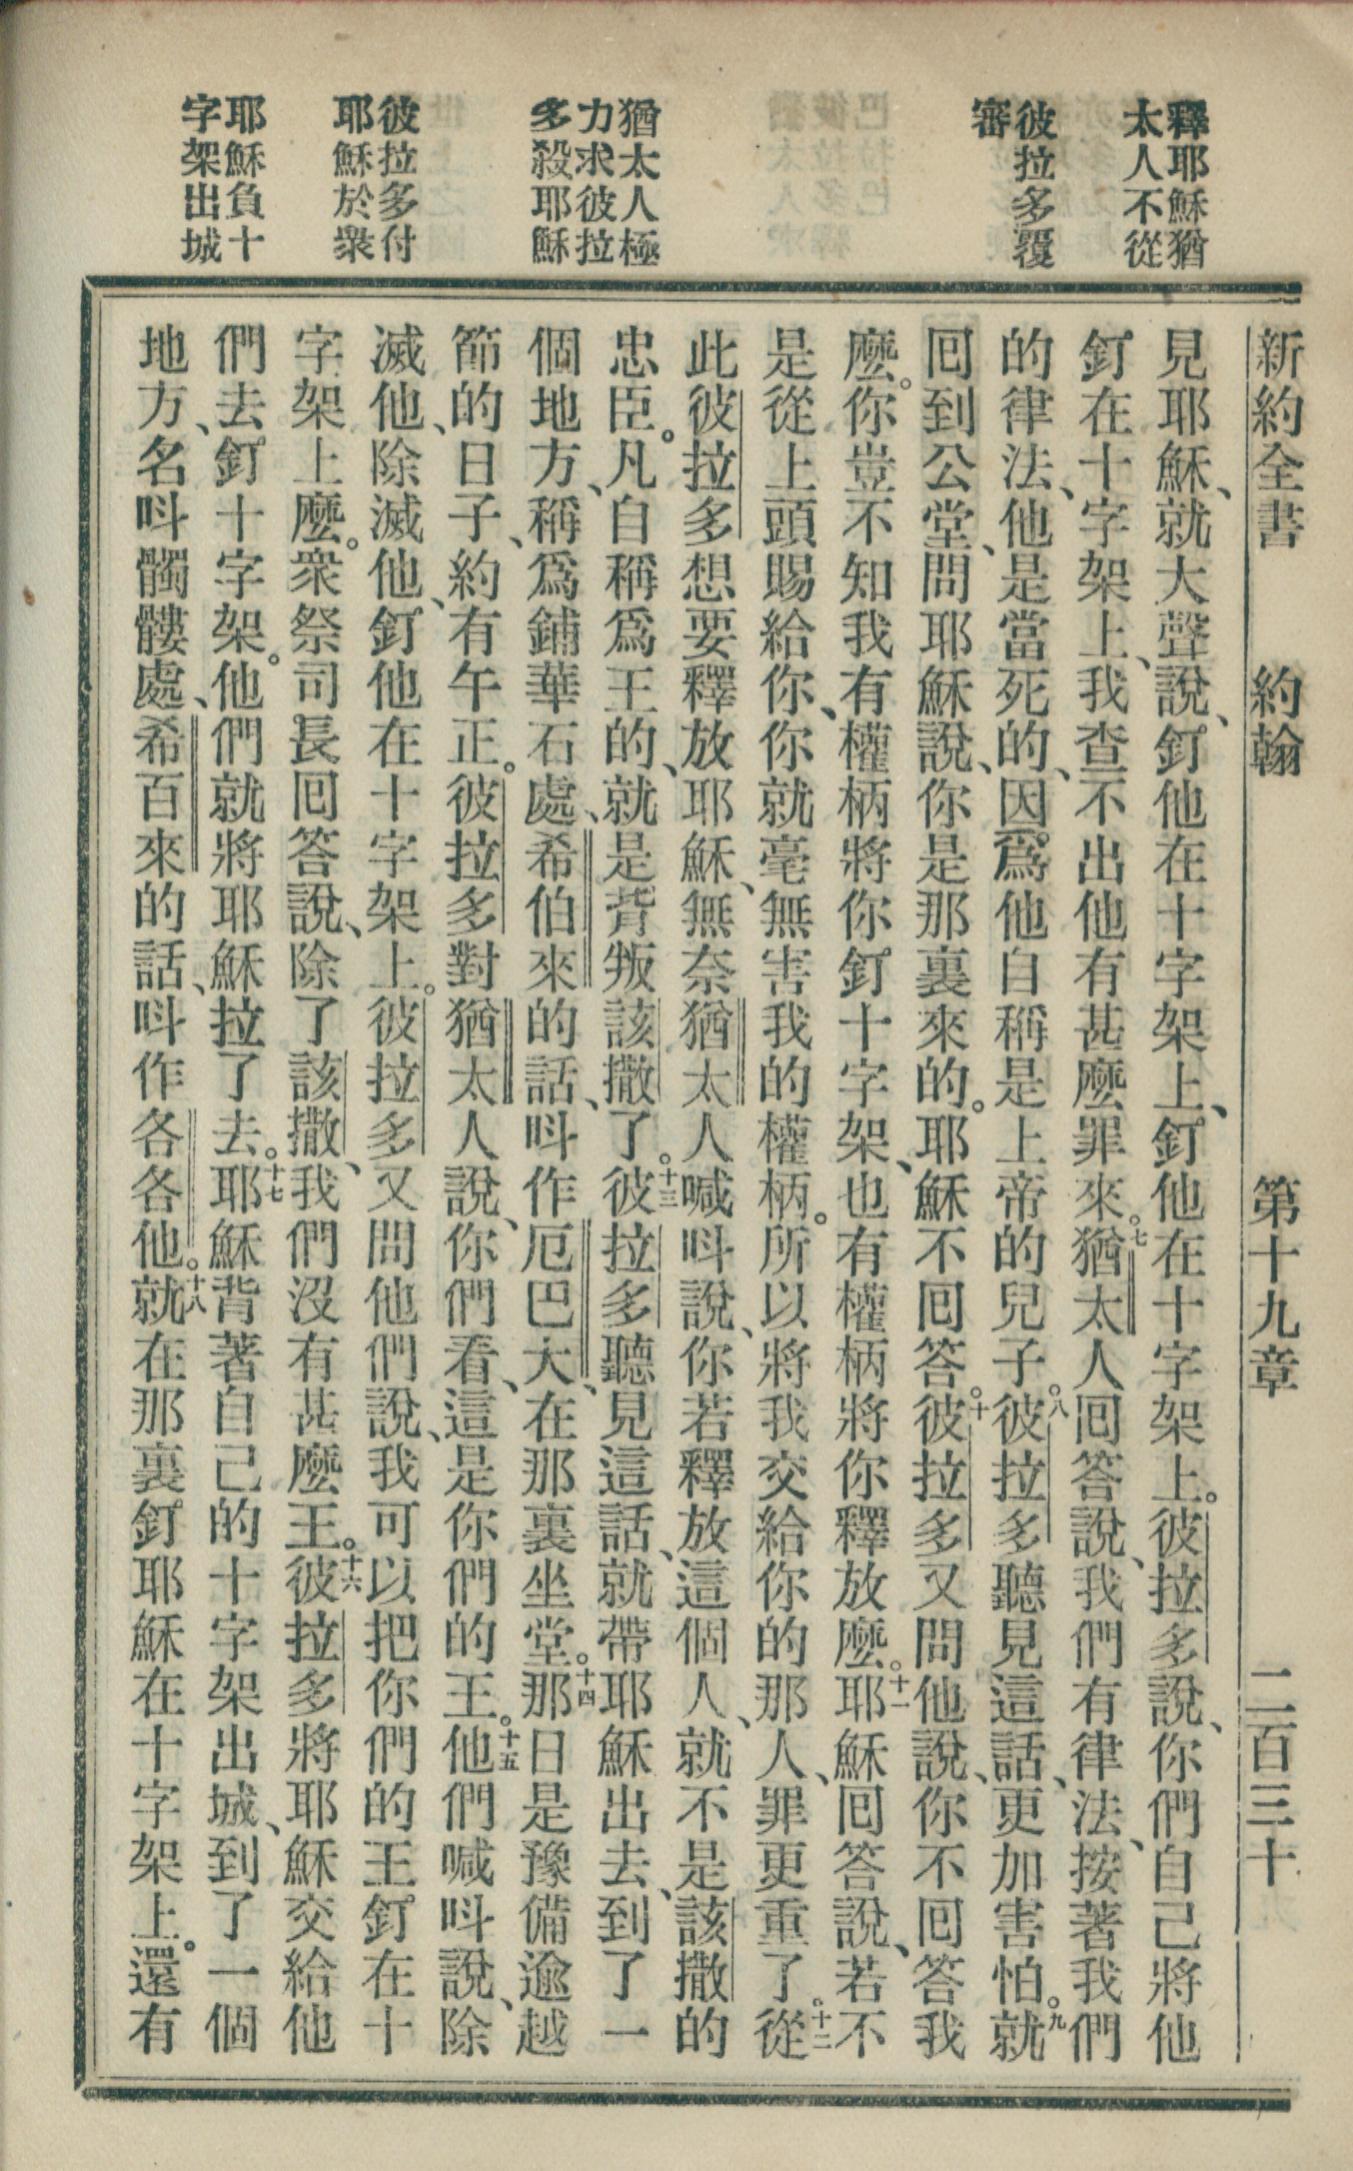 釋耶穌猶
太人不從
彼拉多覆
審
猶太人極
力求彼拉
多殺耶穌
彼拉多付
耶穌於衆
耶穌負十
字架出城
新約全書 約翰 第十九章 二百三十
見耶穌、就大聲說、釘他在十字架上、釘他在十字架上。彼拉多說、你們自己將他
釘在十字架上、我查不出他有甚麼罪來。七猶太人囘答說、我們有律法、按著我們
的律法、他是當死的、因爲他自稱是上帝的兒子。八彼拉多聽見這話、更加害怕。九就
囘到公堂、問耶穌說、你是那裏來的。耶穌不囘答。十彼拉多又問他說、你不囘答我
麼。你豈不知我有權柄將你釘十字架、也有權柄將你釋放麼。十一耶穌囘答說、若不
是從上頭賜給你、你就毫無害我的權柄。所以將我交給你的那人、罪更重了。十二從
此彼拉多想要釋放耶穌、無奈猶太人喊呌說、你若釋放這個人、就不是該撒的
忠臣。凡自稱爲王的、就是背叛該撒了。十三彼拉多聽見這話、就帶耶穌出去、到了一
個地方、稱爲鋪華石處、希伯來的話、呌作厄巴大、在那裏坐堂。十四那日是豫備逾越
節的日子、約有午正。彼拉多對猶太人說、你們看、這是你們的王。十五他們喊呌說、除
滅他、除滅他、釘他在十字架上。彼拉多又問他們說、我可以把你們的王釘在十
字架上麼。衆祭司長囘答說、除了該撒、我們沒有甚麼王。十六彼拉多將耶穌交給他
們去釘十字架。他們就將耶穌拉了去。十七耶穌背著自己的十字架出城、到了一個
地方、名呌髑髏處、希百來的話、呌作各各他。十八就在那裏釘耶穌在十字架上。還有